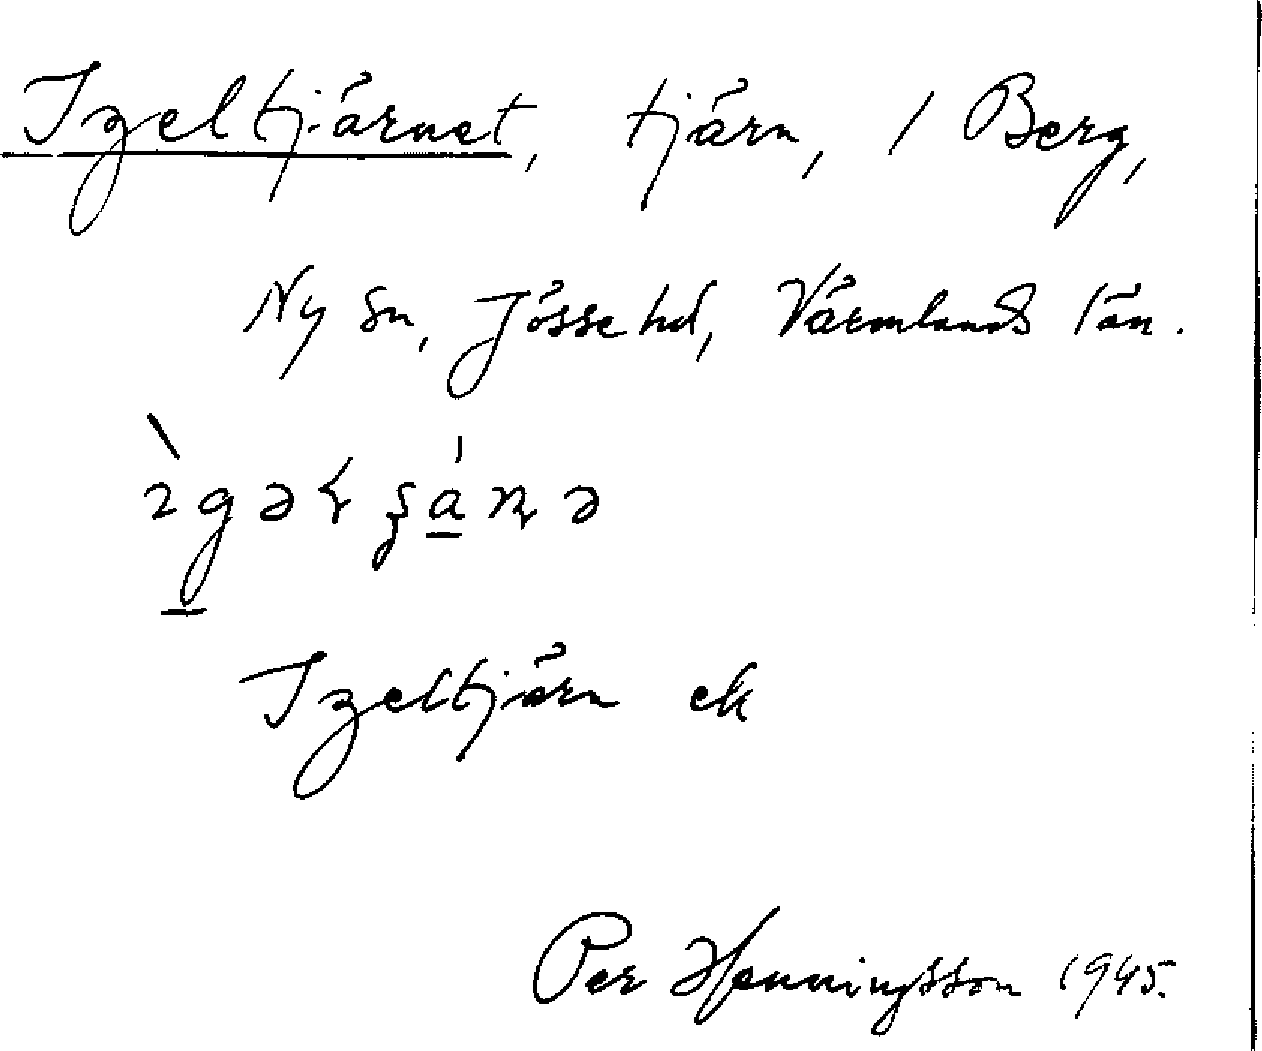 Igeltjärnet, tjärn, i Berg,
Ny sn, Jösse hd, Värmlands län.
Igeltjärn ek
Per Henningsson 1945.